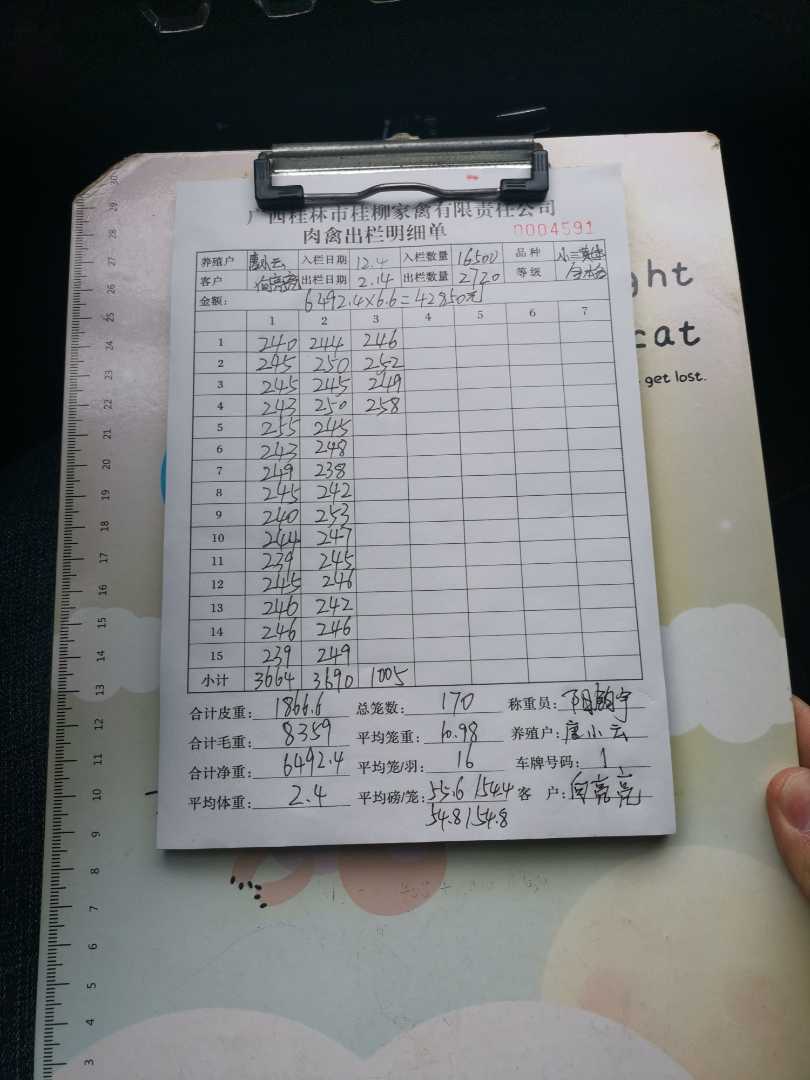 广西桂林市桂柳家禽有限责任公司
肉禽出栏明细单 0004591
养殖户 唐小云 入栏日期 12.4 入栏数量 16500 品种 小三黄
客户 向亮亮 出栏日期 2.14 出栏数量 2720 等级
金额: 6492.4×6.6=42850元
1 2 3 4 5 6 7
1 240 244 246
2 245 250 252
3 245 245 249
4 243 250 258
5 255 245
6 243 248
7 249 238
8 245 242
9 240 253
10 244 247
11 239 245
12 245 246
13 246 242
14 246 246
15 239 249
小计 3664 3690 1005
合计皮重: 1866.6 总笼数: 170 称重员:
合计毛重: 8359 平均笼重: 10.98 养殖户: 唐小云
合计净重: 6492.4 平均笼/羽: 16 车牌号码: 1
平均体重: 2.4 平均磅/笼: 55.6 154.4 客 户: 向亮亮
54.8 154.8
ght
cat
get lost.
30
29
28
27
26
25
24
23
22
21
20
19
18
17
16
15
14
13
12
11
10
9
8
7
6
5
4
3